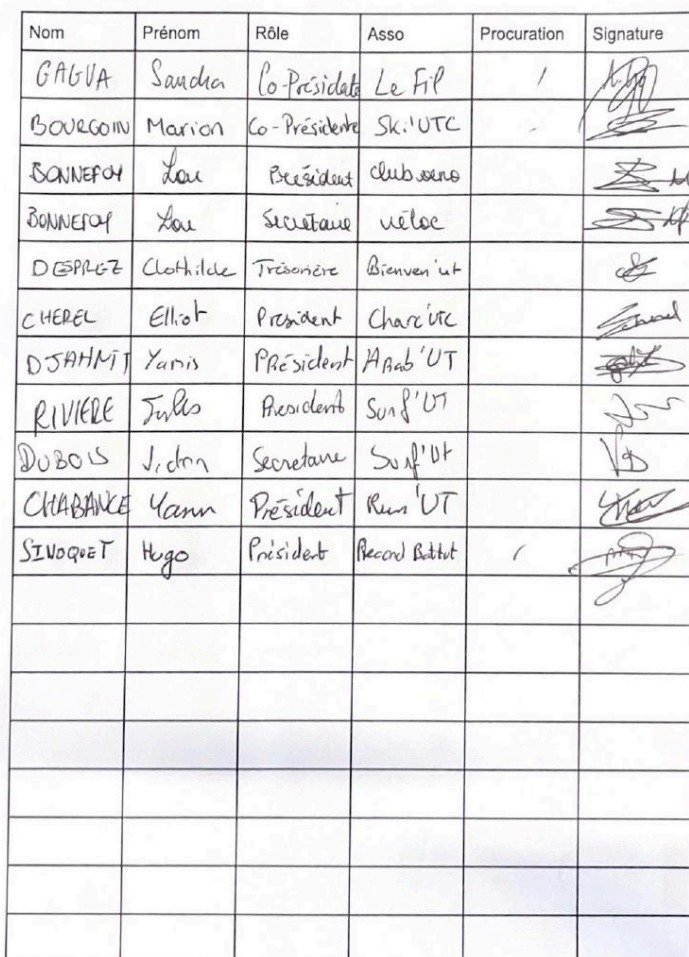 Nom Prénom Rôle Asso Procuration Signature
GAGUA Sandra Co-Présidente Le Fil /
BOURGOIN Marion Co-Présidente Ski'UTC
BONNEFOY Lou Président club
BONNEFOY Lou Secrétaire véloc
DESPREZ Clothilde Trésorière Bienven'ut
CHEREL Elliot President Charc'UTC
Yanis PRésident ARab'UT
RIVIERE Jules President Surf'UT
DUBOIS Secretaire Surf'Ut
CHABANCE Yann Président Run'UT
SINOQUET Hugo Président Record Battut /